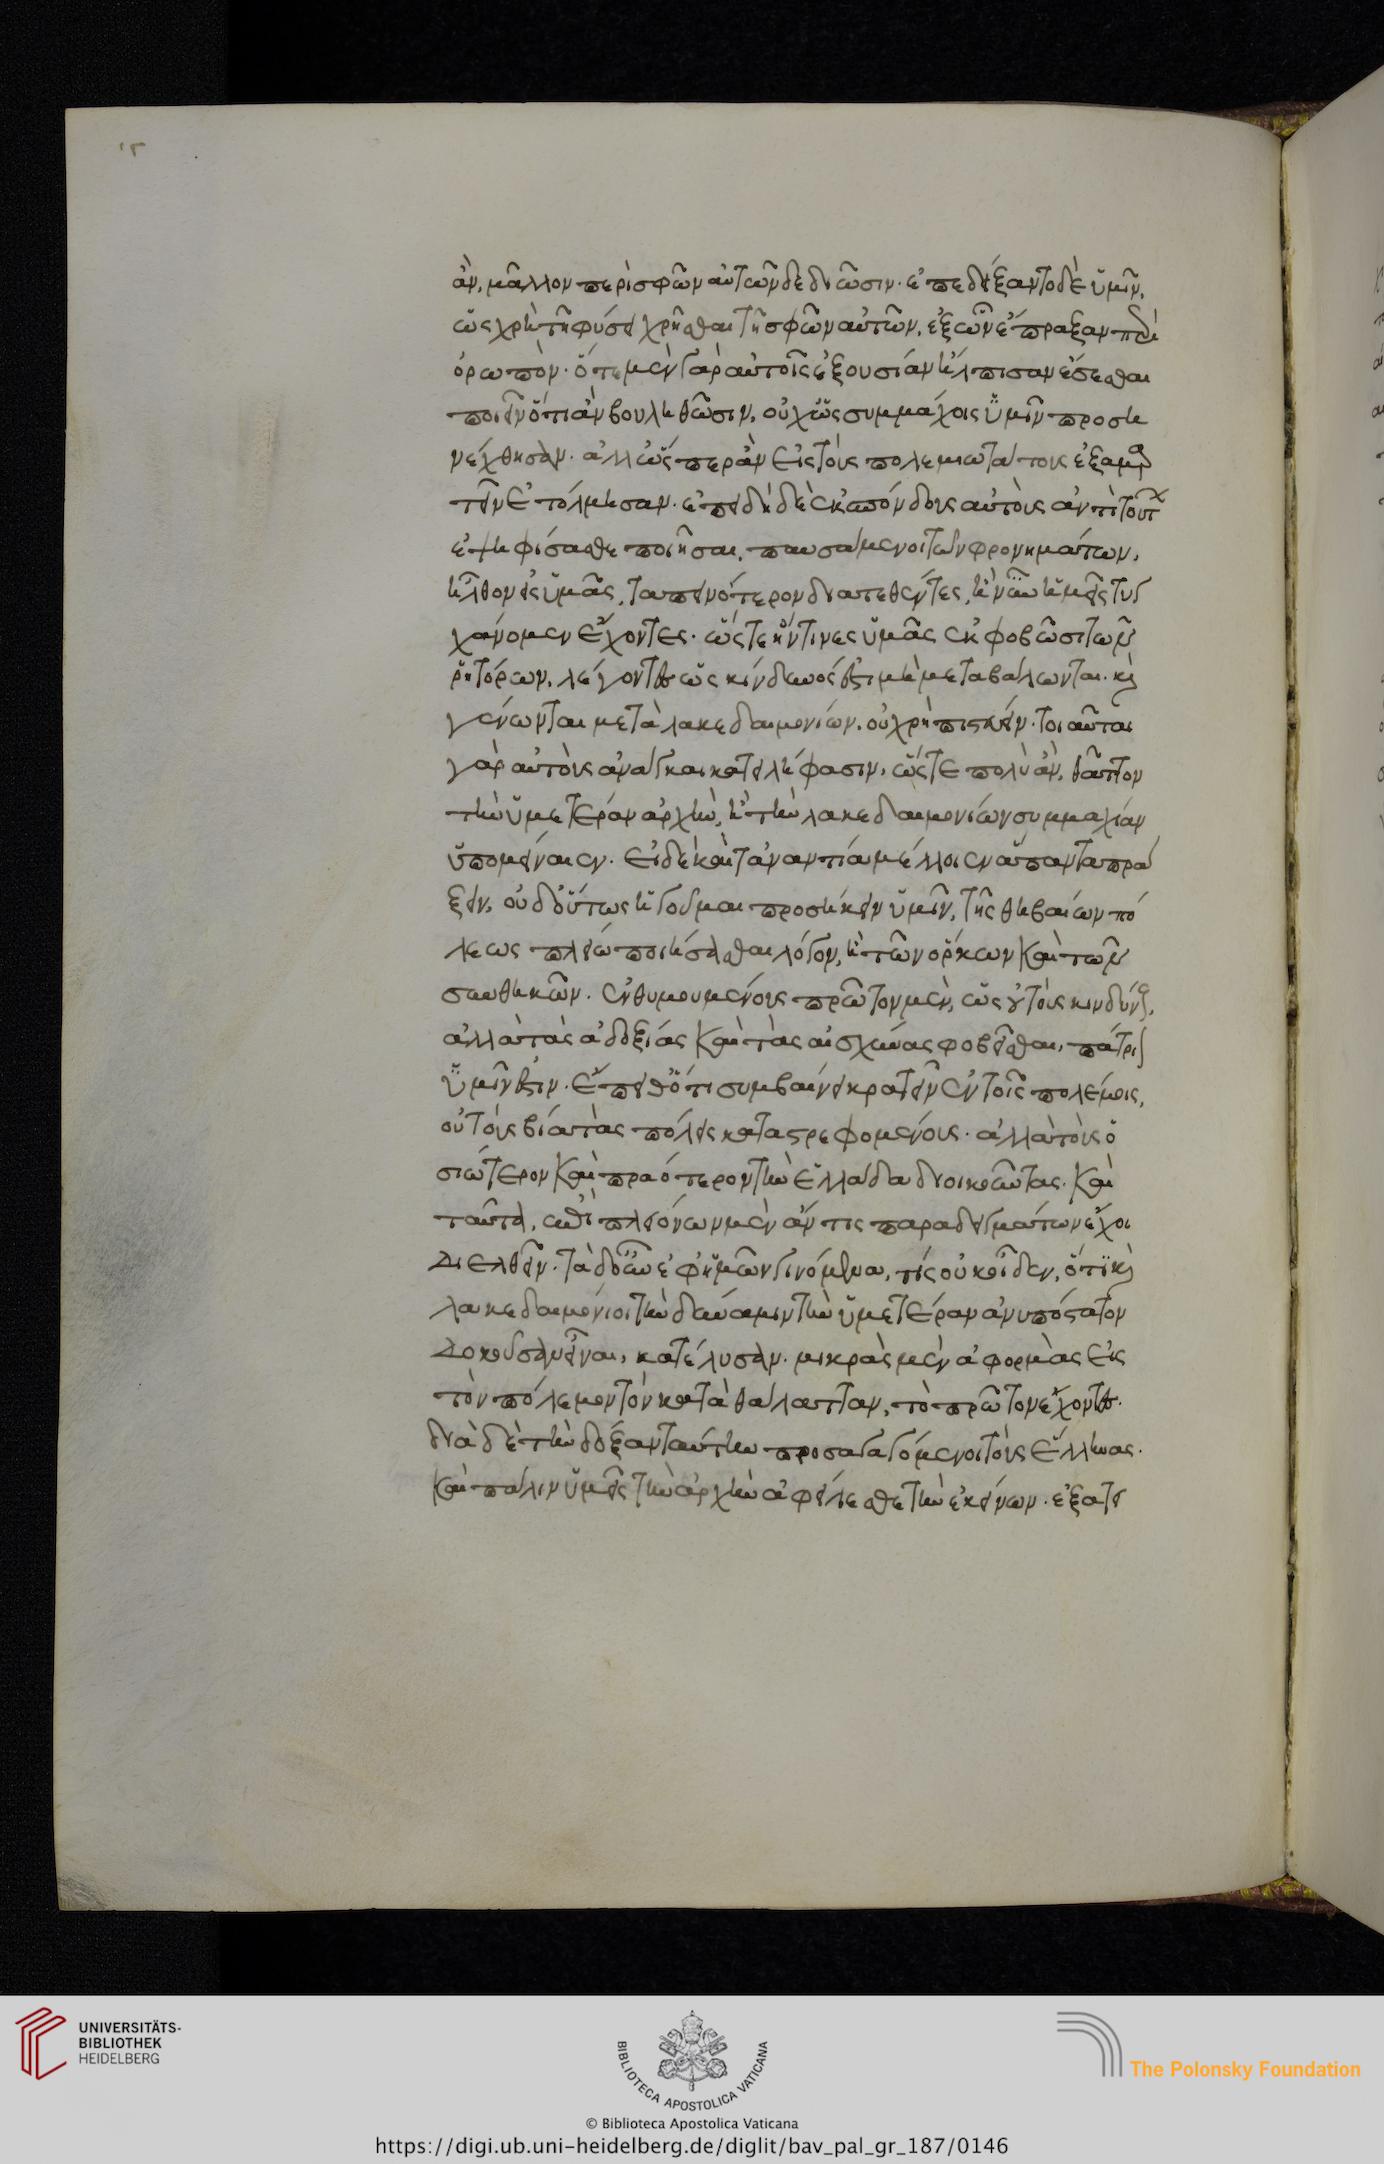 ἂν, μᾶλλον περὶ σφῶν αὐτῶν δεδιῶσιν. ἐπεδείξαντο δὲ ὑμῖν,
ὡς χρὴ τῇ φύσει χρῆσθαι τῇ σφῶν αὐτῶν, ἐξ ὧν ἔπραξαν περὶ
ὀρωπὸν. ὅτε μὲν γὰρ αὐτοῖς ἐξουσίαν ἤλπισαν ἔσεσθαι
ποιεῖν ὅτι ἂν βουληθῶσιν, οὐχ ὡς συμμάχοις ὑμῖν προση
νέχθησαν. ἀλλ ὥσπερ ἂν εἰς τοὺς πολεμιωτάτους ἐξαμαρ
τεῖν ἐτόλμησαν. ἐπειδὴ δὲ ἐκσπόνδους αὐτοὺς ἀντὶ τούτων
ἐψηφίσασθε ποιῆσαι, παυσάμενοι τῶν φρονημάτων,
ἦλθον εἰς ὑμᾶς, ταπεινότερον διατεθέντες, ἢ νῦν ἡμεῖς τυγ
χάνομεν ἔχοντες. ὥστε ἤν τινες ὑμᾶς ἐκφοβῶσι τῶν
ῥητόρων, λέγοντες ὡς κίνδυνός ἐστι μὴ μεταβάλωνται. καὶ
γένωνται μετὰ λακεδαιμονίων, οὐ χρὴ πιστεύειν. τοιαῦται
γὰρ αὐτοὺς ἀνάγκαι κατειλήφασιν, ὥστε πολὺ ἂν, θᾶττον
τὴν ὑμετέραν ἀρχὴν, ἢ τὴν λακεδαιμονίων συμμαχίαν
ὑπομείναιεν. εἰ δὲ καὶ τἀναντία μέλλοιεν ἅπαντα πρά
ξειν, οὐδ οὕτως ἡγοῦμαι προσήκειν ὑμῖν, τῆς θηβαίων πό
λεως πλείω ποιήσασθαι λόγον, ἢ τῶν ὅρκων καὶ τῶν
συνθηκῶν. ἐνθυμουμένους πρῶτον μὲν, ὡς οὐ τοὺς κινδύνους,
ἀλλὰ τὰς ἀδοξίας καὶ τὰς αἰσχύνας φοβεῖσθαι, πάτριον
ὑμῖν ἐστιν. ἔπειθ ὅτι συμβαίνει κρατεῖν ἐν τοῖς πολέμοις,
οὐ τοὺς βίᾳ τὰς πόλεις καταστρεφομένους. ἀλλὰ τοὺς ὁ
σιώτερον καὶ πραότερον τὴν ἑλλάδα διοικοῦντας. καὶ
ταῦτα, ἐπὶ πλειόνων μὲν ἄν τις παραδειγμάτων ἔχοι
διελθεῖν. τὰ δ οὖν ἐφ ἡμῶν γινόμενα, τίς οὐκ οἶδεν, ὅτι καὶ
λακεδαιμόνιοι τὴν δύναμιν τὴν ὑμετέραν ἀνυπόστατον
δοκοῦσαν εἶναι, κατέλυσαν. μικρὰς μὲν ἀφορμὰς εἰς
τὸν πόλεμον τὸν κατὰ θάλατταν, τὸ πρῶτον ἔχοντες.
διὰ δὲ τὴν δόξαν ταύτην προσαγαγόμενοι τοὺς ἕλληνας.
καὶ πάλιν ὑμεῖς τὴν ἀρχὴν ἀφείλεσθε τὴν ἐκείνων. ἐξ ἀτει
UNIVERSITÄTS-
BIBLIOTHEK
HEIDELBERG
BIBLIOTECA APOSTOLICA VATICANA
The Polonsky Foundation
© Biblioteca Apostolica Vaticana
https://digi.ub.uni-heidelberg.de/diglit/bav_pal_gr_187/0146